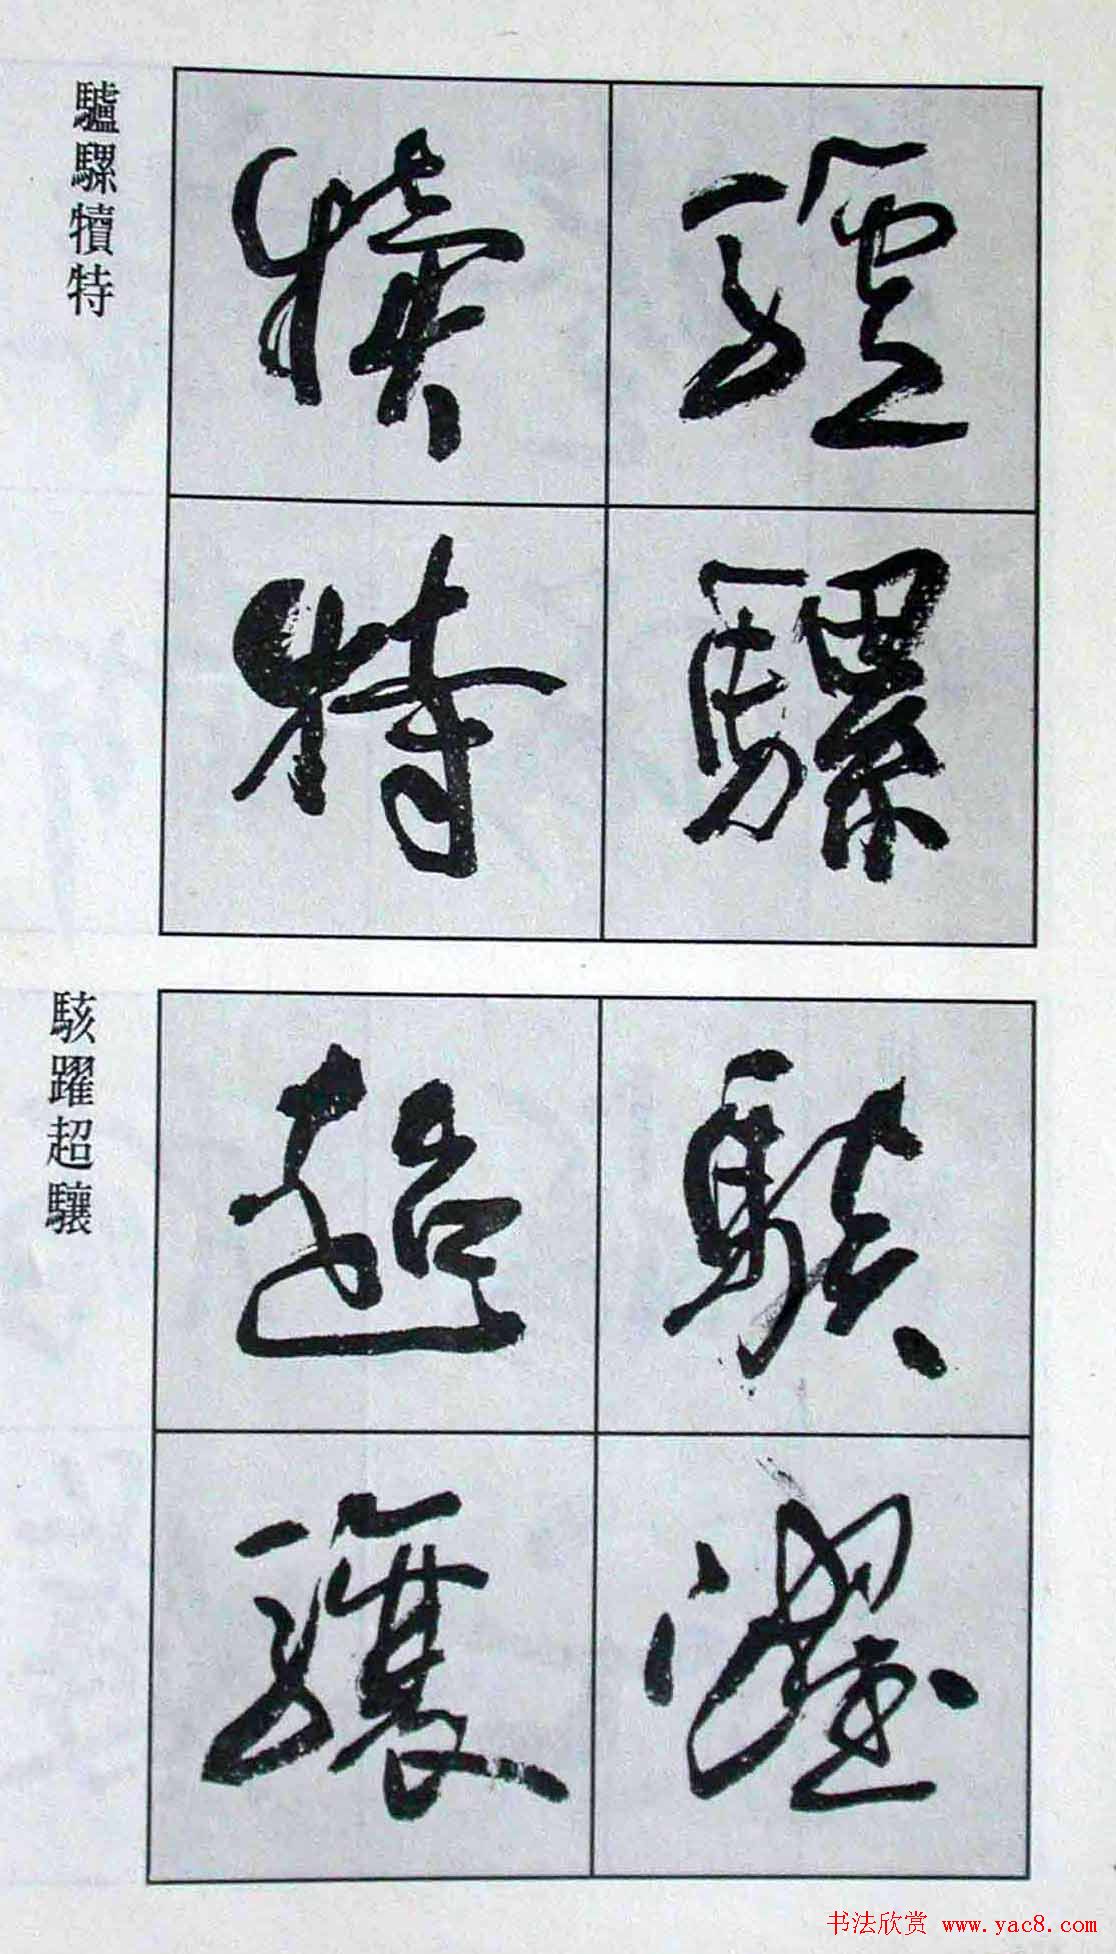 驢騾犢特
驢騾
犢特
駭躍超驤
駭躍
超驤
书法欣赏 www.yac8.com